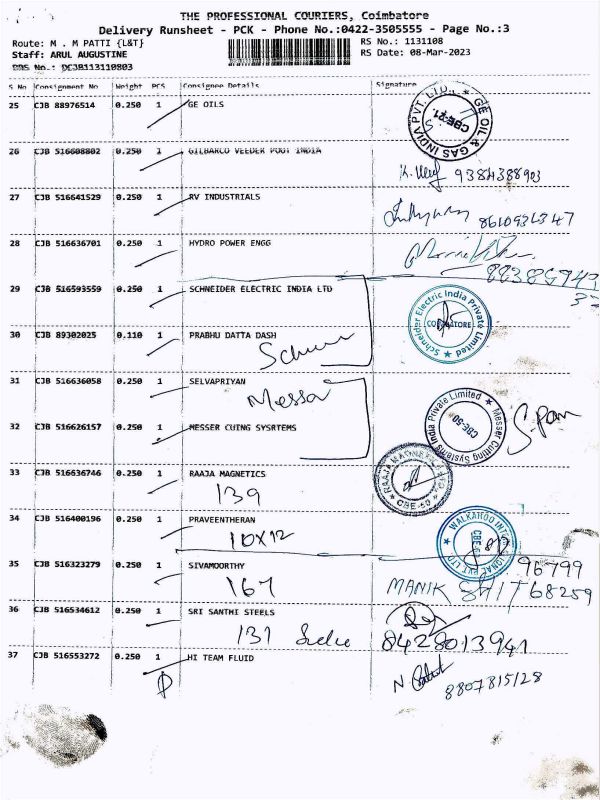 THE PROFESSIONAL COURIERS, Coimbatore
Delivery Runsheet - PCK - Phone No.:0422-3505555 - Page No.:3
Route: M . M PATTI {L&T}
RS No.: 1131108
Staff: ARUL AUGUSTINE
RS Date: 08-Mar-2023
DRS No.: DC3B113110803
S No Consignment No Weight PCS Consignee Details Signature
25 CJB 88976514 0.250 1 GE OILS
GE OIL & GAS INDIA PVT. LTD.
CBE-21.
26 CJB 516608802 0.250 1 GILBARCO VEEDER POOT INDIA
9384388903
27 CJB 516641529 0.250 1 RV INDUSTRIALS
8610931347
28 CJB 516636701 0.250 1 HYDRO POWER ENGG
29 CJB 516593559 0.250 1 SCHNEIDER ELECTRIC INDIA LTD
Schneider Electric India Private Limited
COIMBATORE
30 CJB 89302025 0.110 1 PRABHU DATTA DASH
31 CJB 516636058 0.250 1 SELVAPRIYAN
Messer
32 CJB 516626157 0.250 1 MESSER CUING SYSRTEMS
Messer Cutting Systems India Private Limited
CBE-50
33 CJB 516636746 0.250 1 RAAJA MAGNETICS
139
CBE-50
34 CJB 516400196 0.250 1 PRAVEENTHERAN
10X12
35 CJB 516323279 0.250 1 SIVAMOORTHY
167
96799
MANIK 68259
36 CJB 516534612 0.250 1 SRI SANTHI STEELS
131
8428013941
37 CJB 516553272 0.250 1 HI TEAM FLUID
8807815128